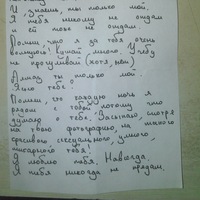 И знаешь, ты только мой.
Я тебя никому не отдам
и ей тоже не отдам
Помни, что я за тебя очень
волнуюсь! Кушай много. Учебу
не прогуливай (хотя, нет)
ты только мой
Помни, что каждую ночь я
рядом с тобой, потому что
думаю о тебе. Засыпаю смотря
на твою фотографию, на такого
красивого, умного,
шикарного тебя!
Я люблю тебя! Навсегда.
Я тебя никогда не предам.